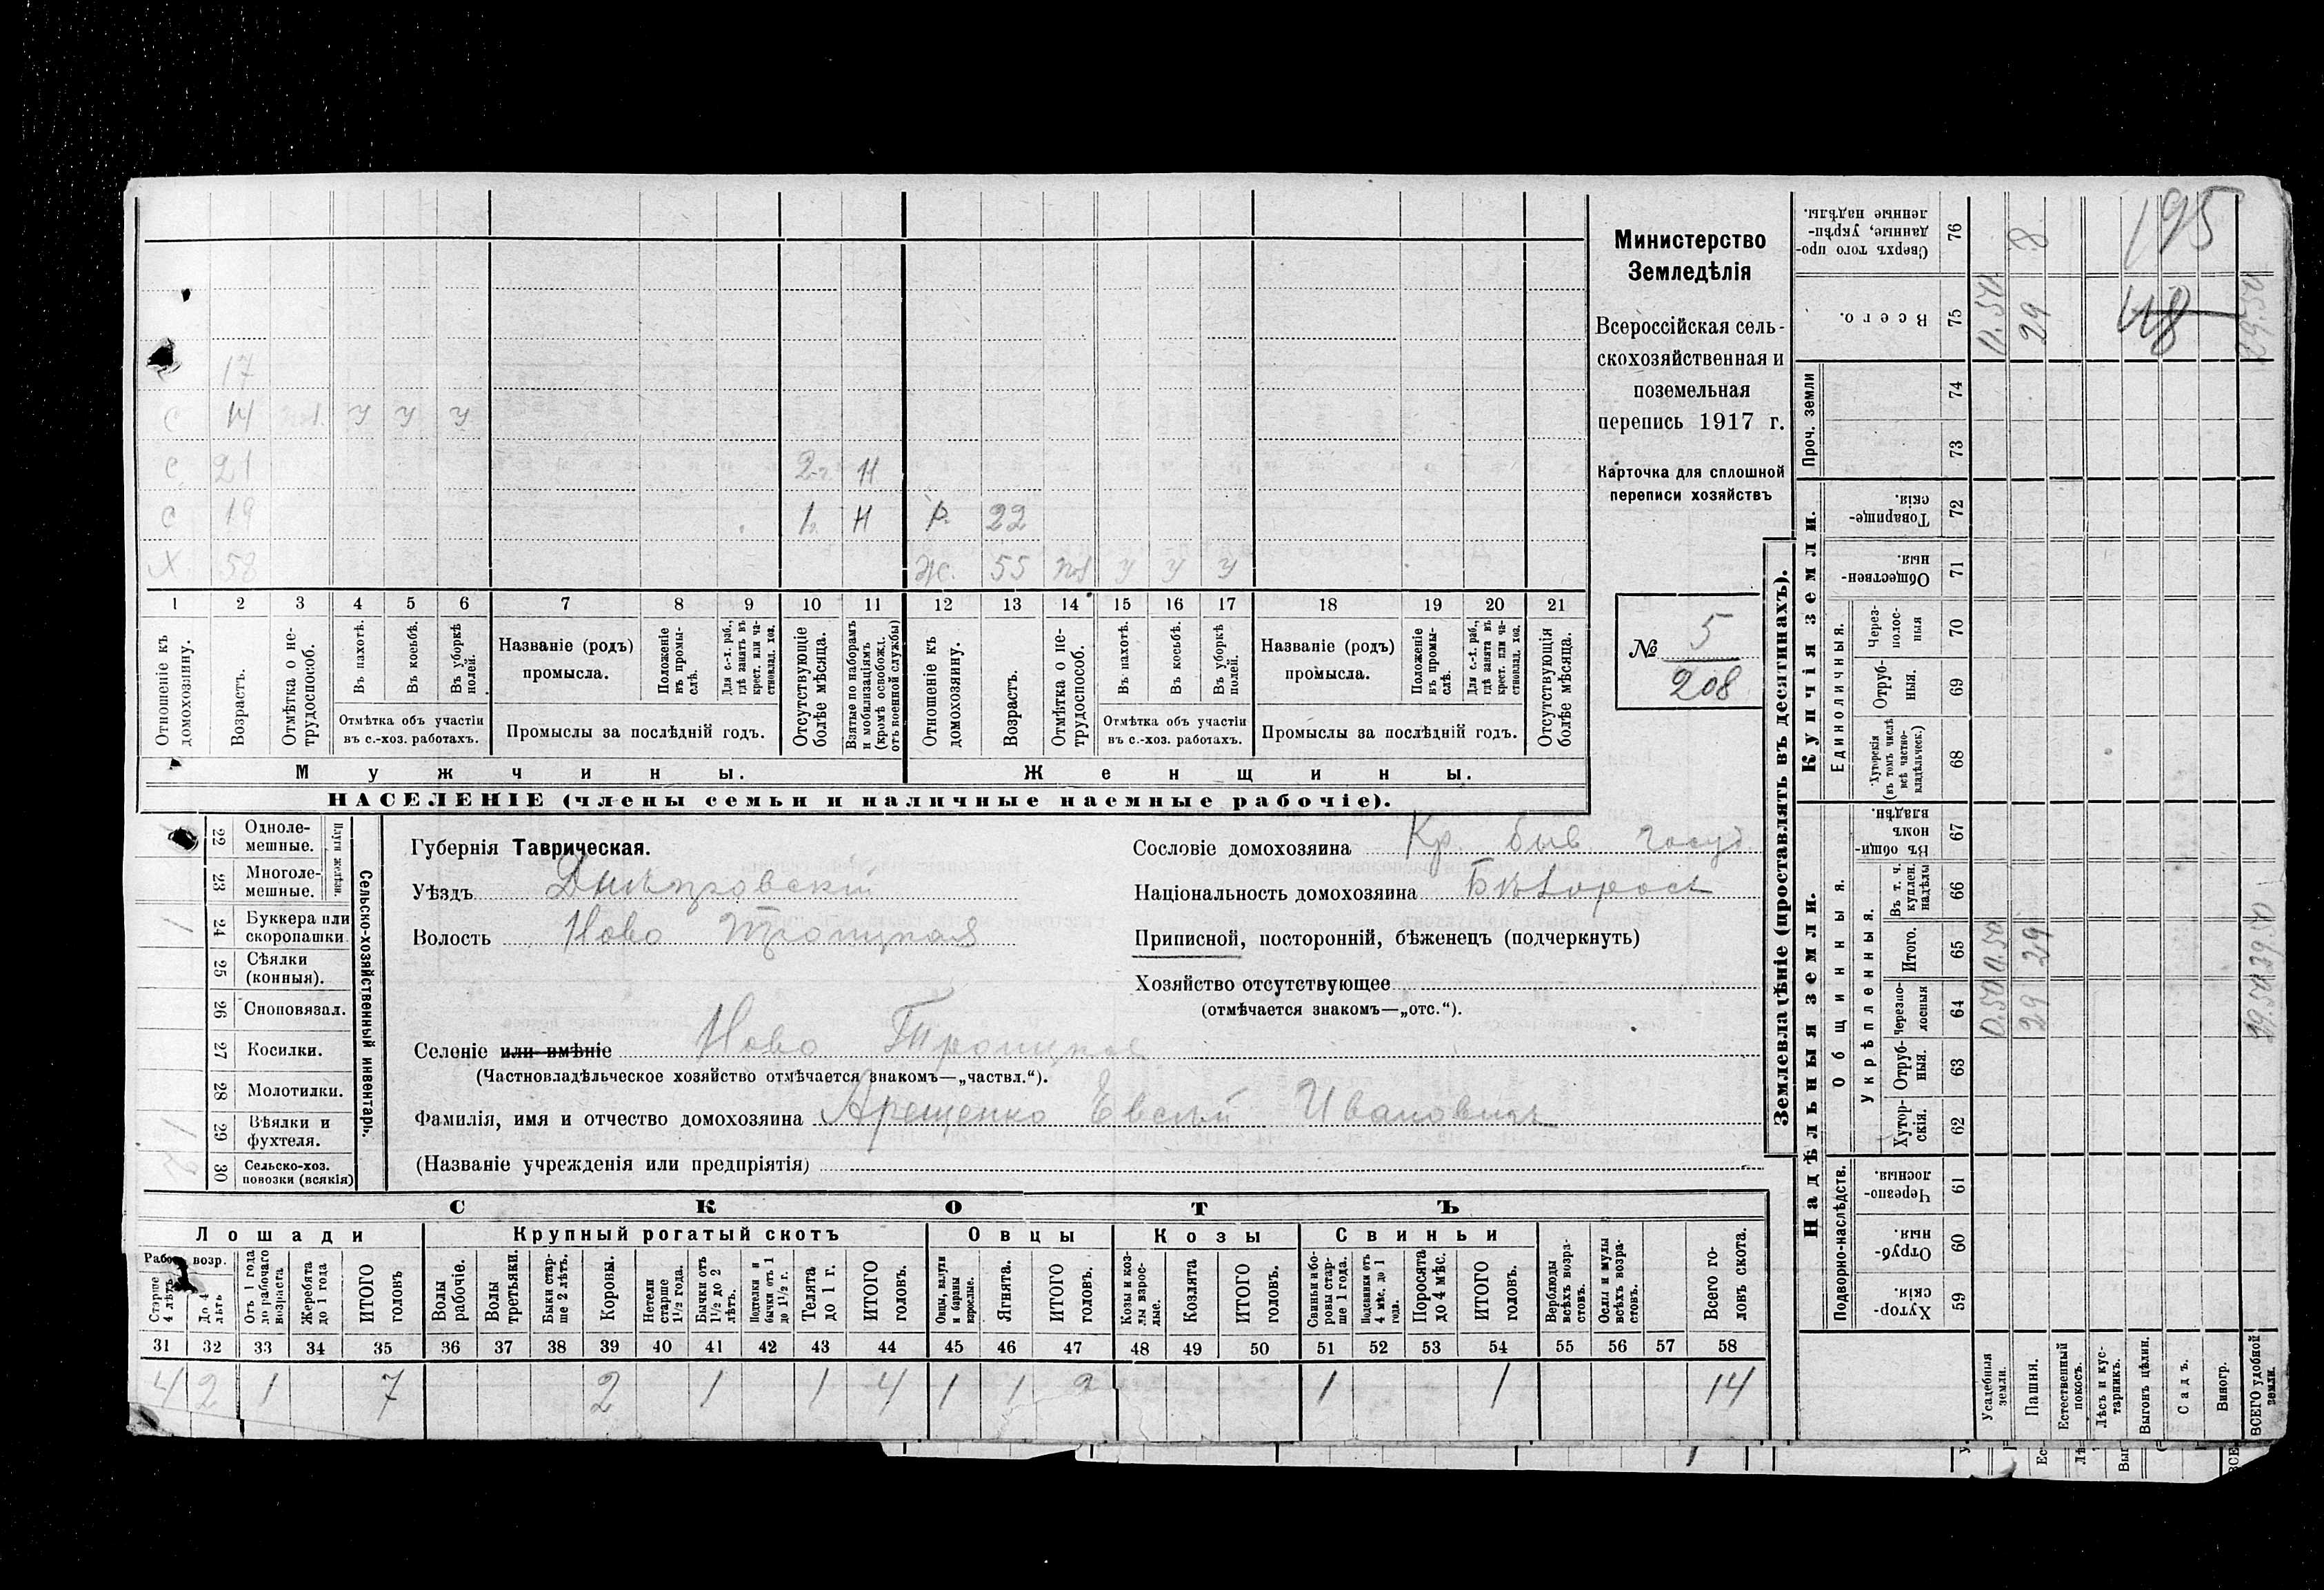 17
С 14 У У У
С 21 2 г. Н
С 19 1 г. Н Р. 22
Х 58 Ж. 55 У У У
1 2 3 4 5 6 7 8 9 10 11 12 13 14 15 16 17 18 19 20 21
Отношеніе къ домохозяину.
Возрастъ.
Отмѣтка о нетрудоспособ.
Въ пахотѣ.
Въ косьбѣ.
Въ уборкѣ полей.
Отмѣтка объ участіи
въ с.-хоз. работахъ.
Названіе (родъ)
промысла.
Положеніе въ промыслѣ.
Для с.-х. раб., гдѣ занятъ въ крест. или частновлад. хоз.
Промыслы за послѣдній годъ.
Отсутствующіе болѣе мѣсяца.
Взятые по наборамъ и мобилизаціямъ (кромѣ освобожд. отъ военной службы)
Отношеніе къ домохозяину.
Возрастъ.
Отмѣтка о нетрудоспособ.
Въ пахотѣ.
Въ косьбѣ.
Въ уборкѣ полей.
Отмѣтка объ участіи
въ с.-хоз. работахъ.
Названіе (родъ)
промысла.
Положеніе въ промыслѣ.
Для с.-х. раб., гдѣ занята въ крест. или частновлад. хоз.
Промыслы за послѣдній годъ.
Отсутствующія болѣе мѣсяца.
Мужчины. Женщины.
НАСЕЛЕНІЕ (члены семьи и наличные наемные рабочіе).
Министерство
Земледѣлія
Всероссійская сель-
скохозяйственная и
поземельная
перепись 1917 г.
Карточка для сплошной
переписи хозяйствъ
№ 5
208
Сельско-хозяйственный инвентарь.
Плуги желѣзн.
22 Одноле-
мешные.
23 Многоле-
мешные.
1 24 Буккера или
скоропашки
25 Сѣялки
(конныя).
26 Сноповязал.
27 Косилки.
28 Молотилки.
1 29 Вѣялки и
фухтеля.
30 Сельско-хоз.
повозки (всякія)
Губернія Таврическая.
Уѣздъ Днѣпровскій
Волость Ново Троицкая
Селеніе или имѣніе Ново Троицкое
(Частновладѣльческое хозяйство отмѣчается знакомъ—„частвл.“).
Фамилія, имя и отчество домохозяина Арещенко Евсѣй Ивановичъ
(Названіе учрежденія или предпріятія)
Сословіе домохозяина Кр. быв. госуд
Національность домохозяина Бѣлорос
Приписной, посторонній, бѣженецъ (подчеркнуть)
Хозяйство отсутствующее
(отмѣчается знакомъ—„отс.“).
СКОТЪ
Лошади Крупный рогатый скотъ Овцы Козы Свиньи
Рабоч. возр.
Старше 4 лѣтъ
До 4 лѣтъ
Отъ 1 года до рабочаго возраста
Жеребята до 1 года
ИТОГО головъ
Волы рабочіе.
Волы третьяки.
Быки старше 2 лѣтъ.
Коровы.
Нетели старше 1½ года.
Бычки отъ 1½ до 2 лѣтъ.
Подтелки и бычки отъ 1 до 1½ г.
Телята до 1 г.
ИТОГО головъ.
Овцы, валухи и бараны взрослые.
Ягнята.
ИТОГО головъ.
Козы и козлы взрослые.
Козлята
ИТОГО головъ.
Свиньи и боровы старше 1 года.
Подсвинки отъ 4 мѣс. до 1 года.
Поросята до 4 мѣс.
ИТОГО головъ.
Верблюды всѣхъ возрастовъ.
Ослы и мулы всѣхъ возрастовъ.
Всего головъ скота.
31 32 33 34 35 36 37 38 39 40 41 42 43 44 45 46 47 48 49 50 51 52 53 54 55 56 57 58
4 2 1 7 2 1 1 4 1 1 2 1 1 14
Землевладѣніе (проставлять въ десятинахъ).
Надѣльныя земли. Купчія земли.
Подворно-наслѣдств.
Общинныя.
Укрѣпленныя.
Единоличныя.
Проч. земли
59 Хуторскія.
60 Отрубныя.
61 Черезполосныя.
62 Хуторскія.
63 Отрубныя.
64 Черезполосныя
65 Итого.
66 Въ т. ч. куплен. надѣлы
67 Въ общинномъ владѣн.
68 Хуторскія (въ томъ числѣ всѣ частновладѣльческ.)
69 Отрубныя.
70 Черезполосныя
71 Общественныя.
72 Товарищескія.
73
74
75 Всего.
76 Сверхъ того проданные, укрѣпленные надѣлы.
Усадебныя земли. 0.50 0.50 0.50
Пашня. 29 29 29 8
Естественный покосъ.
Лѣсъ и кустарникъ.
Выгонъ цѣлин.
Садъ.
Виногр.
ВСЕГО удобной земли. 29.50 29.50 29.50
195
118